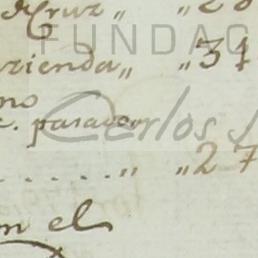 de Cruz „ „ 28
FUNDAC
azienda „ „ 31
mo
c. pasador
Carlos
. . . . . . „ „ 27
en el